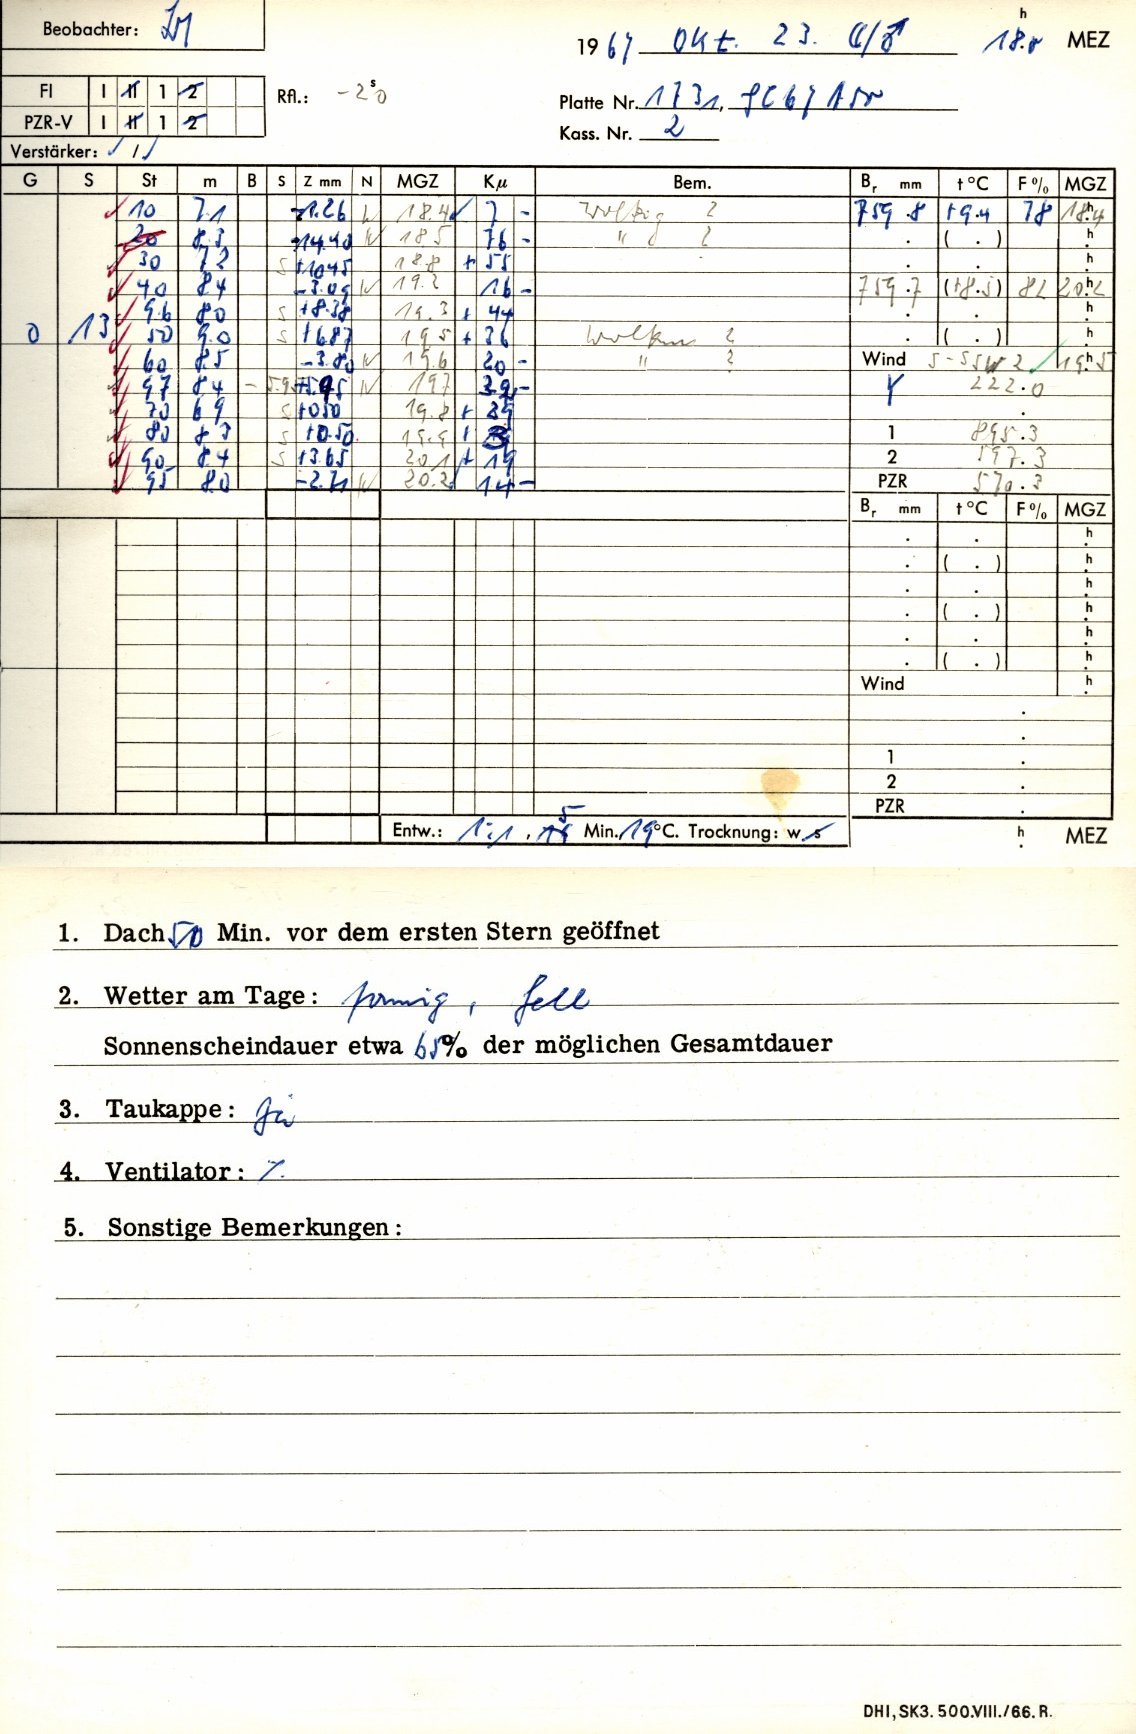 Beobachter:
1967 Okt. 23. 18.0 h MEZ
FI I II 1 2
Rfl.: -2.0 s
Platte Nr. 1731,
PZR-V I II 1 2
Kass. Nr. 2
Verstärker: /
G S St m B S Z mm N MGZ Kμ Bem. Br mm t °C F % MGZ
10 7.1 -1.26 N 18.4 7 - wolkig ? 759.8 +9.4 78 18.4 h
20 8.3 -14.40 N 18.5 76 - " ? . ( . ) h
30 7.2 S +10.45 18.8 + 55
40 8.4 -3.09 N 19.2 16 - 759.7 (+8.5) 82 20.2 h
96 8.0 S +8.38 19.3 + 44
0 13 50 9.0 S +6.87 19.5 + 36 Wolken ? . ( . ) h
60 8.5 -3.80 N 19.6 20 - " ? Wind S-SSW 2 19.5 h
97 8.4 N 19.7 - 222.0
70 6.9 S +0.50 19.8 +
80 8.3 S +0.50 19.9 + 1 895.3
90 8.4 S +3.65 20.1 + 19 2 597.3
95 8.0 -2.71 N 20.2 14 - PZR 570.3
Br mm t °C F % MGZ
. . h
. ( . ) h
. . h
. ( . ) h
. . h
. ( . ) h
Wind h
1 .
2 .
PZR .
Entw.: 1:1, 5 Min. 19 °C. Trocknung: w. s
h MEZ
1. Dach 50 Min. vor dem ersten Stern geöffnet
2. Wetter am Tage: sonnig, hell
Sonnenscheindauer etwa 65% der möglichen Gesamtdauer
3. Taukappe: ja
4. Ventilator: /.
5. Sonstige Bemerkungen:
DHI, SK3. 500.VIII./66. R.